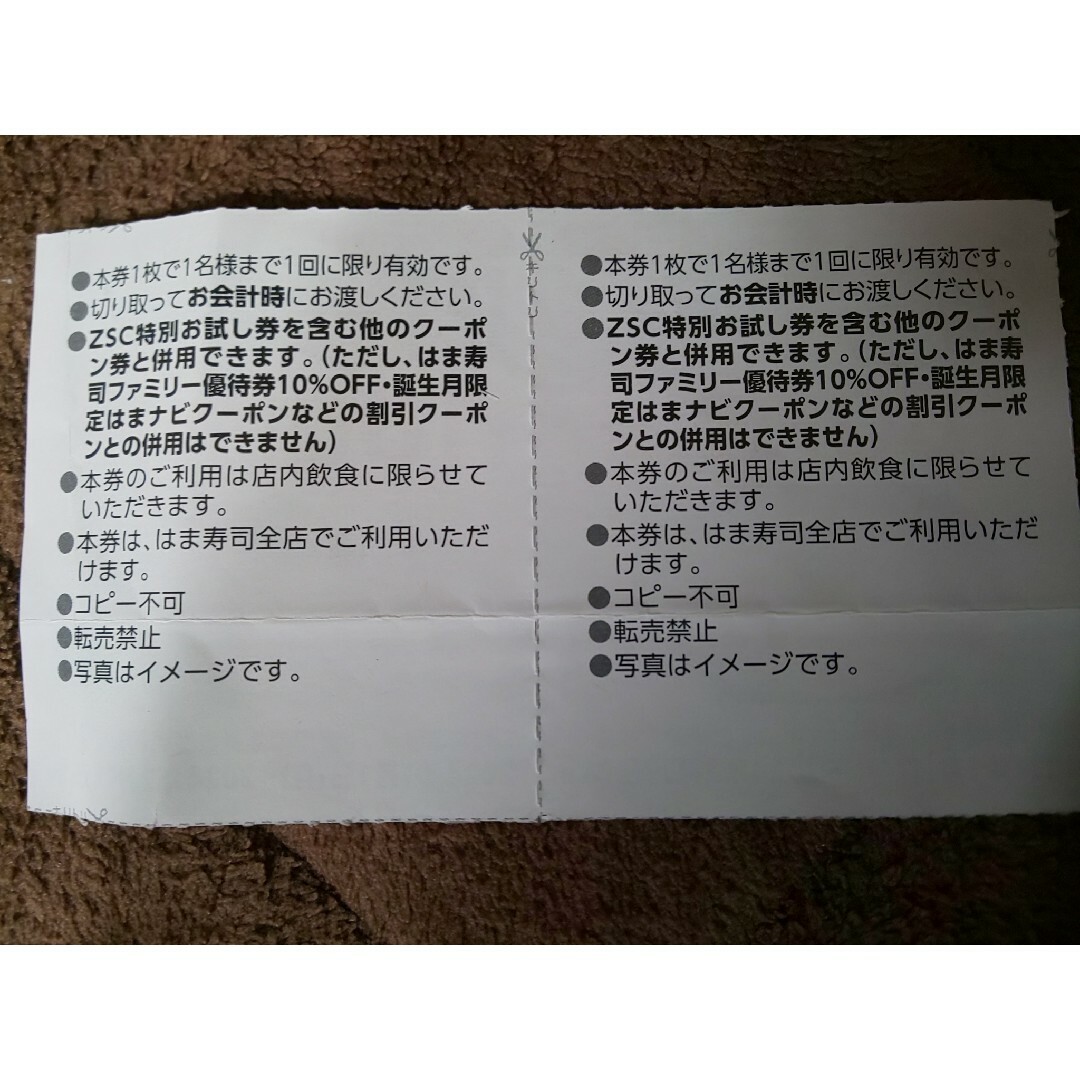 ●本券1枚で1名様まで1回に限り有効です。
●切り取ってお会計時にお渡しください。
●ZSC特別お試し券を含む他のクーポ
ン券と併用できます。(ただし、はま寿
司ファミリー優待券10%OFF・誕生月限
定はまナビクーポンなどの割引クーポ
ンとの併用はできません)
●本券のご利用は店内飲食に限らせて
いただきます。
●本券は、はま寿司全店でご利用いただ
けます。
●コピー不可
●転売禁止
●写真はイメージです。
●本券1枚で1名様まで1回に限り有効です。
●切り取ってお会計時にお渡しください。
●ZSC特別お試し券を含む他のクーポ
ン券と併用できます。(ただし、はま寿
司ファミリー優待券10%OFF・誕生月限
定はまナビクーポンなどの割引クーポ
ンとの併用はできません)
●本券のご利用は店内飲食に限らせて
いただきます。
●本券は、はま寿司全店でご利用いただ
けます。
●コピー不可
●転売禁止
●写真はイメージです。